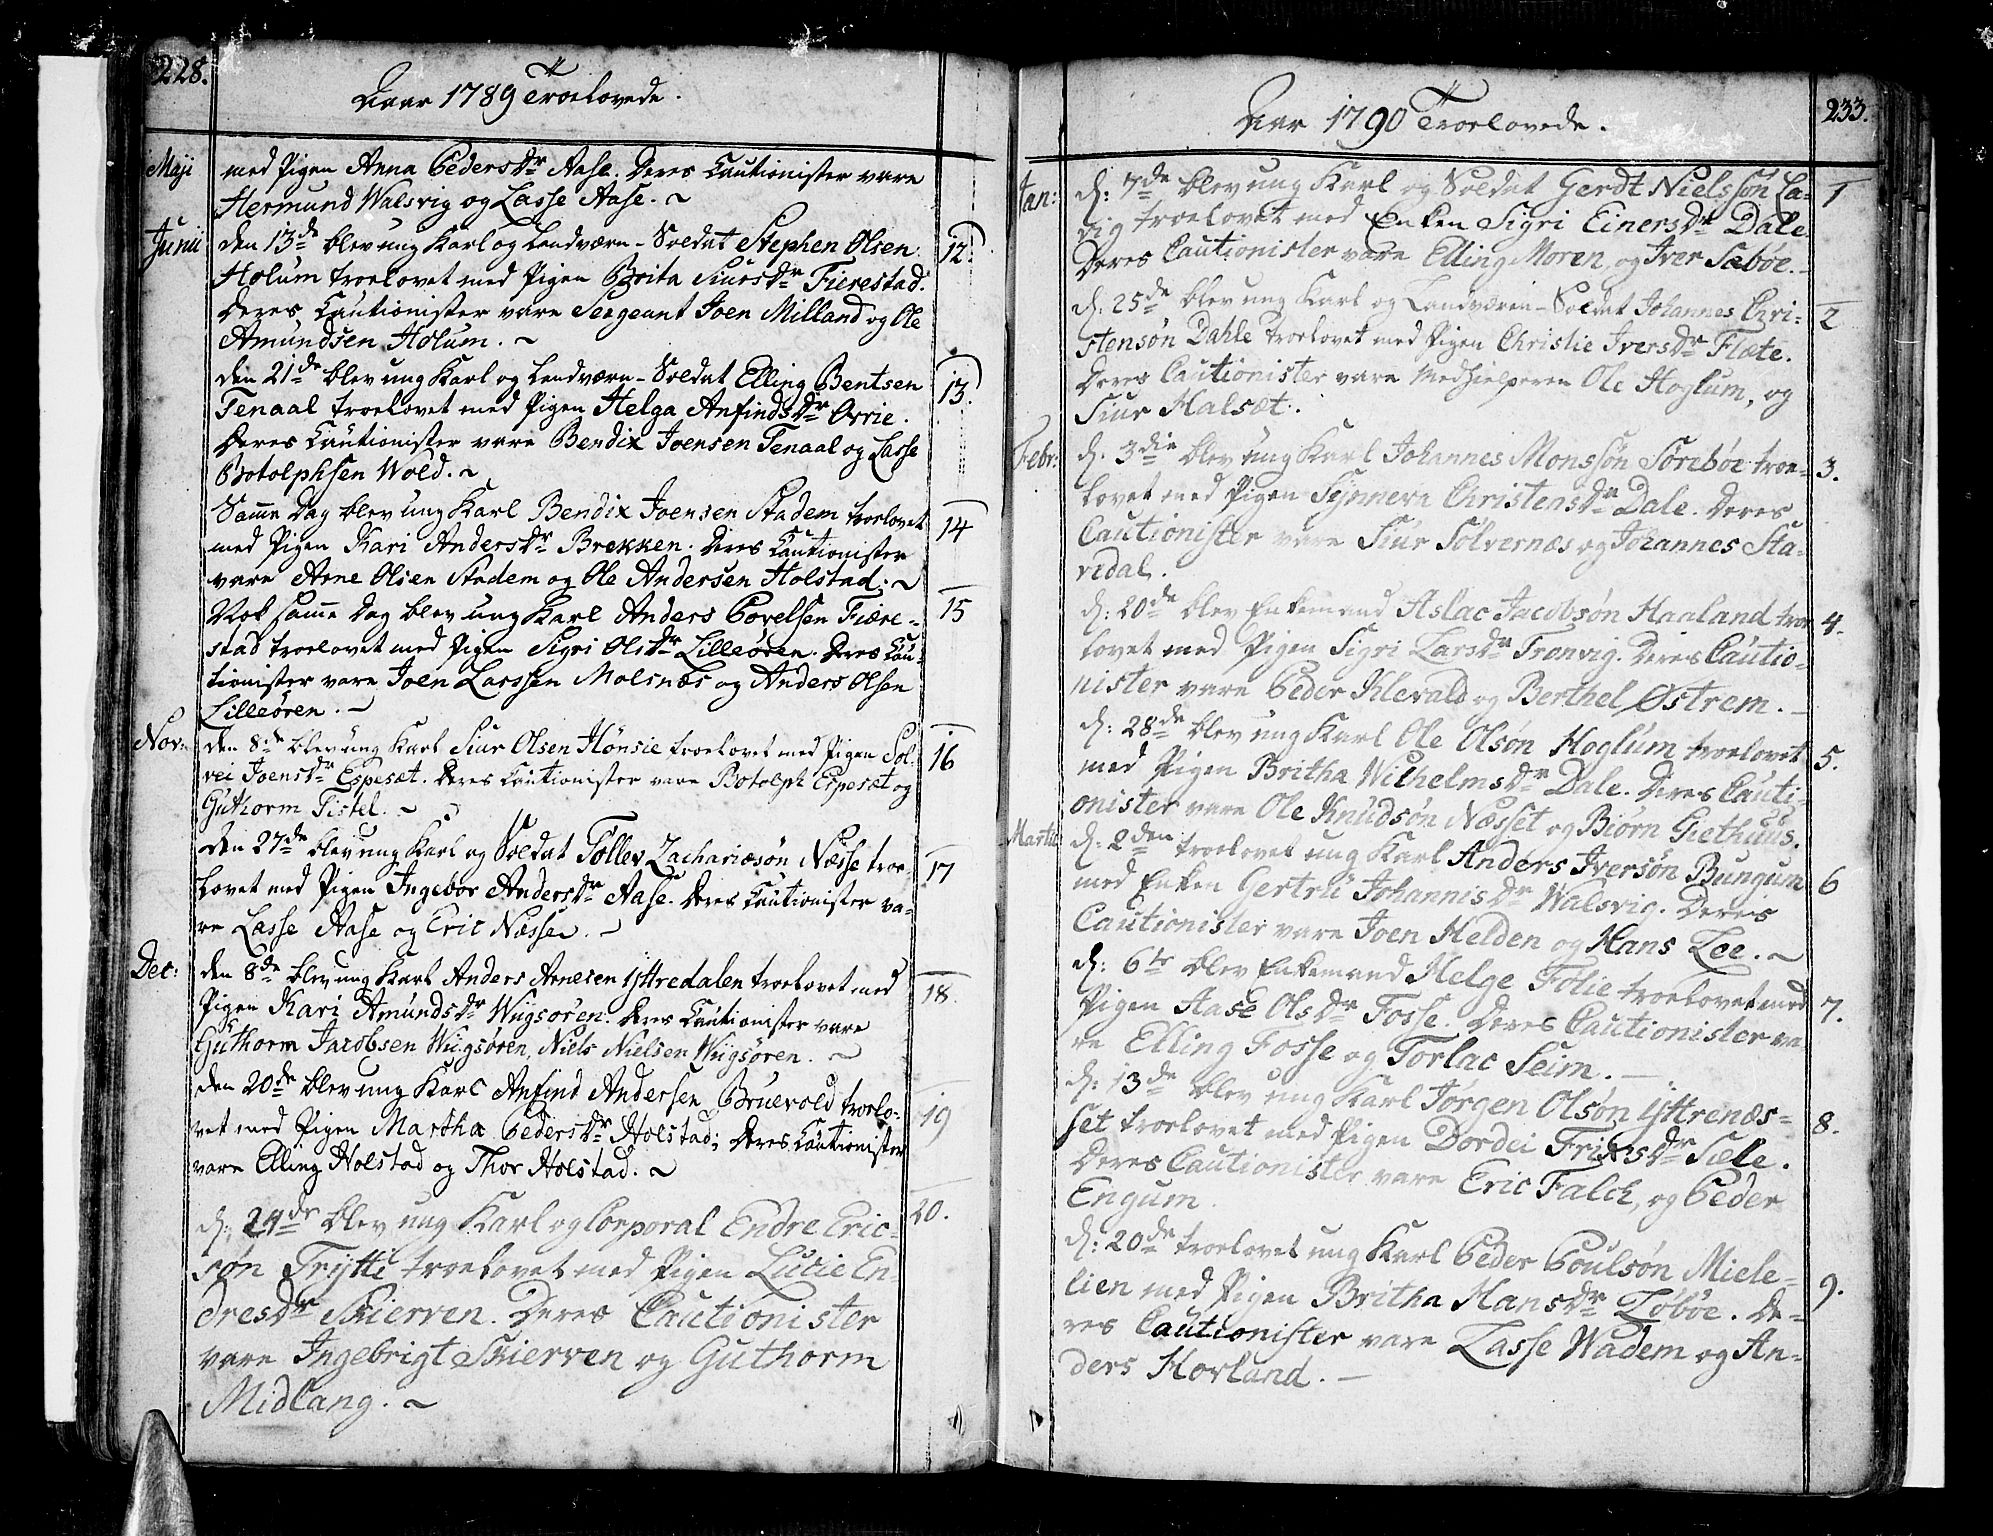 228.
Aar 1789 Troelovede.
Maji
med Pigen Anna PedersDr Aase. Deres Cautionister vare
Hermund Walsvig og Lasse Aase. ~
Junii
den 13de blev ung Karl og Landværn-Soldat Stephen Olsen
12.
Holum troelovet med Pigen Brita SiursDr Fierestad.
Deres Cautionister vare Sergeant Joen Milland og Ole
Amundsen Holum. ~
den 21de blev ung Karl og Landværn-Soldat Elling Bentsen
13.
Tenaal troelovet med Pigen Helga AnfindsDr Orrie.
Deres Cautionister vare Bendix Joensen Tenaal og Lasse
Botolphsen Wold. ~
Samme Dag blev ung Karl Bendix Joensen Stadem troelovet
14
med Pigen Kari AndersDr Brekken. Deres Cautionister
vare Arne Olsen Stadem og Ole Andersen Holstad. ~
Nok samme Dag blev ung Karl Anders Povelsen Fiære-
15
stad troelovet med Pigen Sigri OlsDr Lilleøren. Deres Cau-
tionister vare Joen Larssen Molsnæs og Anders Olsen
Lilleøren. ~
Nov:
den 8de blev ung Karl Siur Olsen Hønsie troelovet med Pigen Sol-
16
vei JoensDr Espesæt. Deres Cautionister vare Botolph Espesæt og
Guthorm Tistel. ~
den 27de blev ung Karl og Soldat Tollev Zachariæsøn Næsse troe-
17
lovet med Pigen Ingebor AndersDr Aase. Deres Cautionister va-
re Lasse Aase og Eric Næsse. ~
Dec:
den 8de blev ung Karl Anders Arnesen Yttredalen troelovet med
18.
Pigen Kari AmundsDr Wiigsøren. Deres Cautionister vare
Guthorm Jacobsen Wiigsøren, Niels Nielsen Wiigsøren. ~
den 20de blev ung Karl Anfind Andersen Bruevold troelo-
19
vet med Pigen Martha PedersDr Holstad; Deres Cautionister
vare Elling Holstad og Thor Holstad. ~
d: 24de blev ung Karl og Corporal Endre Eric-
20.
søn Trytti troelovet med Pigen Lucie En-
dresDr Skierven. Deres Cautionister
vare Ingebrigt Skierven og Guthorm
Midlang. ~
Aar 1790 Troelovede.
233.
Jan:
d: 7de blev ung Karl og Soldat Gerdt Nielssøn La-
1
dig troelovet med Enken Sigri EinersDr Dale
Deres Cautionister vare Elling Moren, og Iver Sæbøe.
d: 25de blev ung Karl og Landværn-Soldat Johannes Chri-
2
stensøn Dahle troelovet med Pigen Christie IversDr Flæte.
Deres Cautionister vare Medhielperen Ole Hoglum, og
Siur Halsæt.
Febr:
d. 3die blev ung Karl Johannes Monssøn Sørebøe troe-
3.
lovet med Pigen Synneva ChristensDr Dale. Deres
Cautionister vare Siur Solvernæs og Johannes Sta-
vedal.
d: 20de blev Enkemand Aslac Jacobsøn Haaland troe
4.
lovet med Pigen Sigri LarsDr Tronvig. Deres Cautio-
nister vare Peder Klevald og Berthel Østrem. -
d: 28de blev ung Karl Ole Olsøn Hoglum troelovet
5.
med Pigen Britha WilhelmsDr Dale. Deres Cauti-
onister vare Ole Knudsøn Næsset og Biørn Giethuus.
Martii
d: 2den troelovet ung Karl Anders Iversøn Bungum
6
med Enken Gertru JohannisDr Walsvig. Deres
Cautionister vare Joen Helden og Hans Lee. ~
d: 6te blev Enkemand Helge Folie troelovet med
7.
Pigen Aase OlsDr Fosse. Deres Cautionister va
re Elling Fosse og Torlac Seim. -
d: 13de blev ung Karl Jørgen Olsøn Yttrenæs-
8.
set troelovet med Pigen Dordei FrixsDr Sæle.
Deres Cautionister vare Eric Falch, og Peder
Engum
d: 20de troelovet ung Karl Peder Poulsøn Miele-
9.
lien med Pigen Britha HansDr Løbøe. De-
res Cautionister vare Lasse Wadem og An-
ders Hovland. -